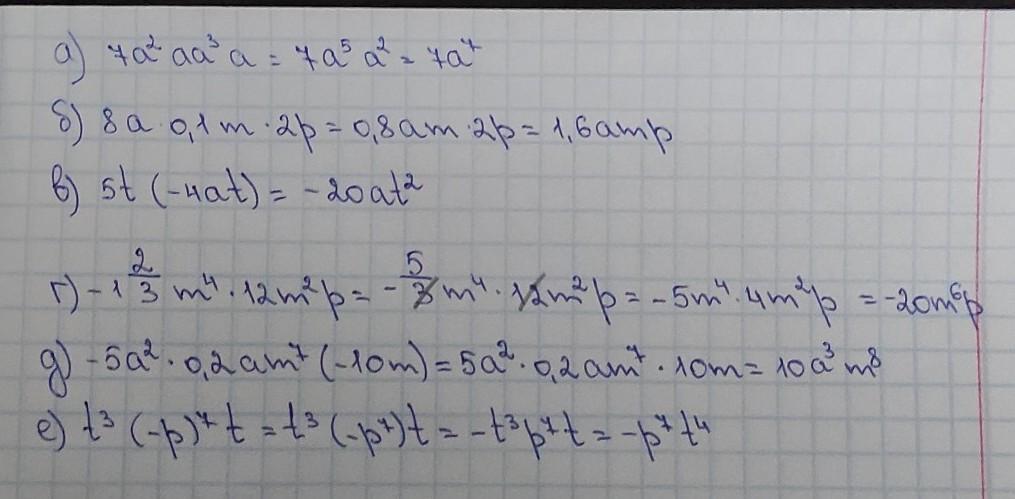 а) 7a² aa³ a = 7a⁵ a² = 7a⁷
б) 8a · 0,1m · 2p = 0,8am · 2p = 1,6amp
в) 5t (-4at) = -20at²
г) -1 2/3 m⁴ · 12m²p = - 5/3 m⁴ · 12m²p = -5m⁴ · 4m²p = -20m⁶p
д) -5a² · 0,2am⁷ (-10m) = 5a² · 0,2am⁷ · 10m = 10a³m⁸
е) t³ (-p)⁷ t = t³ (-p⁷)t = -t³p⁷t = -p⁷t⁴